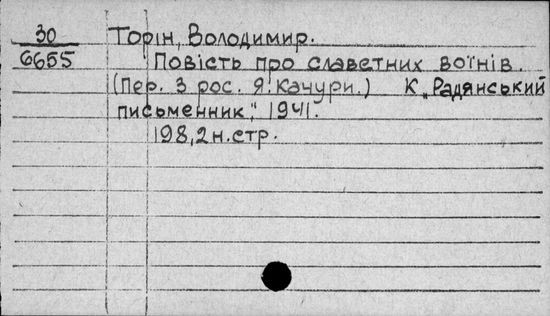 30
6655
Торін, Володимир.
Повість про славетних воїнів.
(Пер. З рос. Я. Качури.) К „Радянський
письменник", 1941.
198, 2 н. стр.